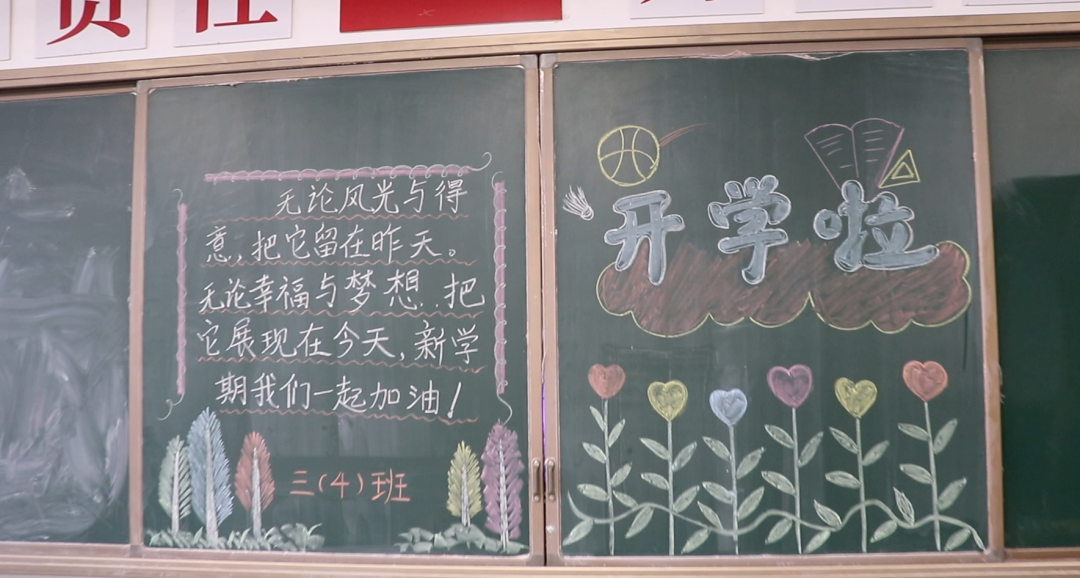 责任
无论风光与得
意,把它留在昨天。
无论幸福与梦想..把
它展现在今天,新学
期我们一起加油!
三(4)班
开学啦